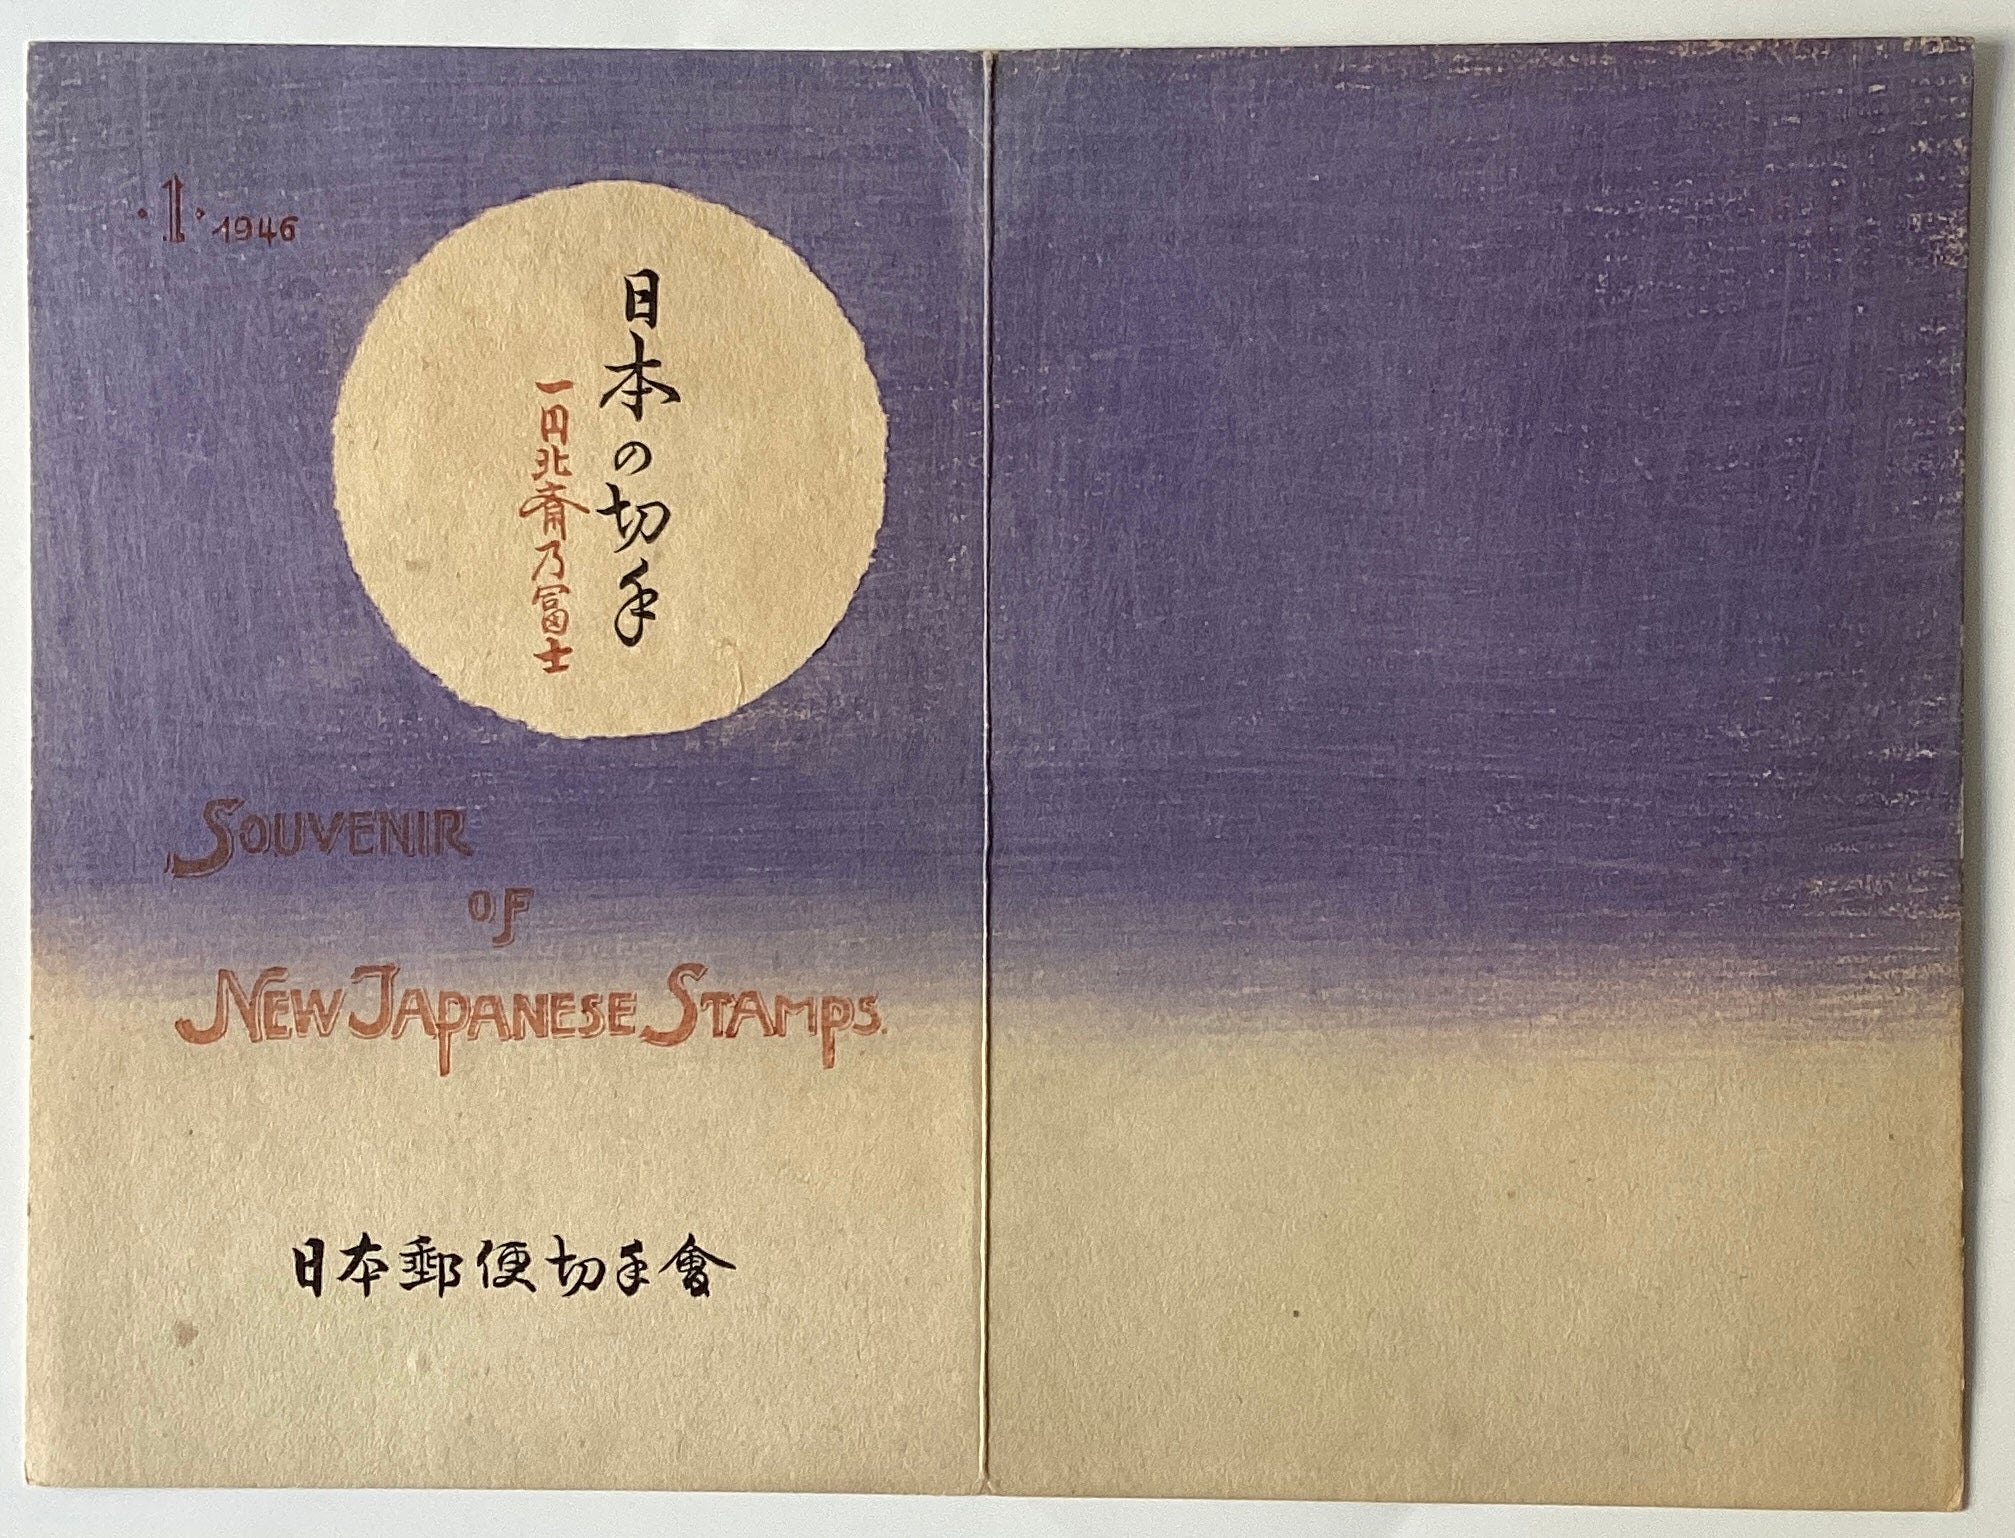 ·1· 1946
日本の切手
一円北斎乃冨士
SOUVENIR
OF
NEW JAPANESE STAMPS.
日本郵便切手會